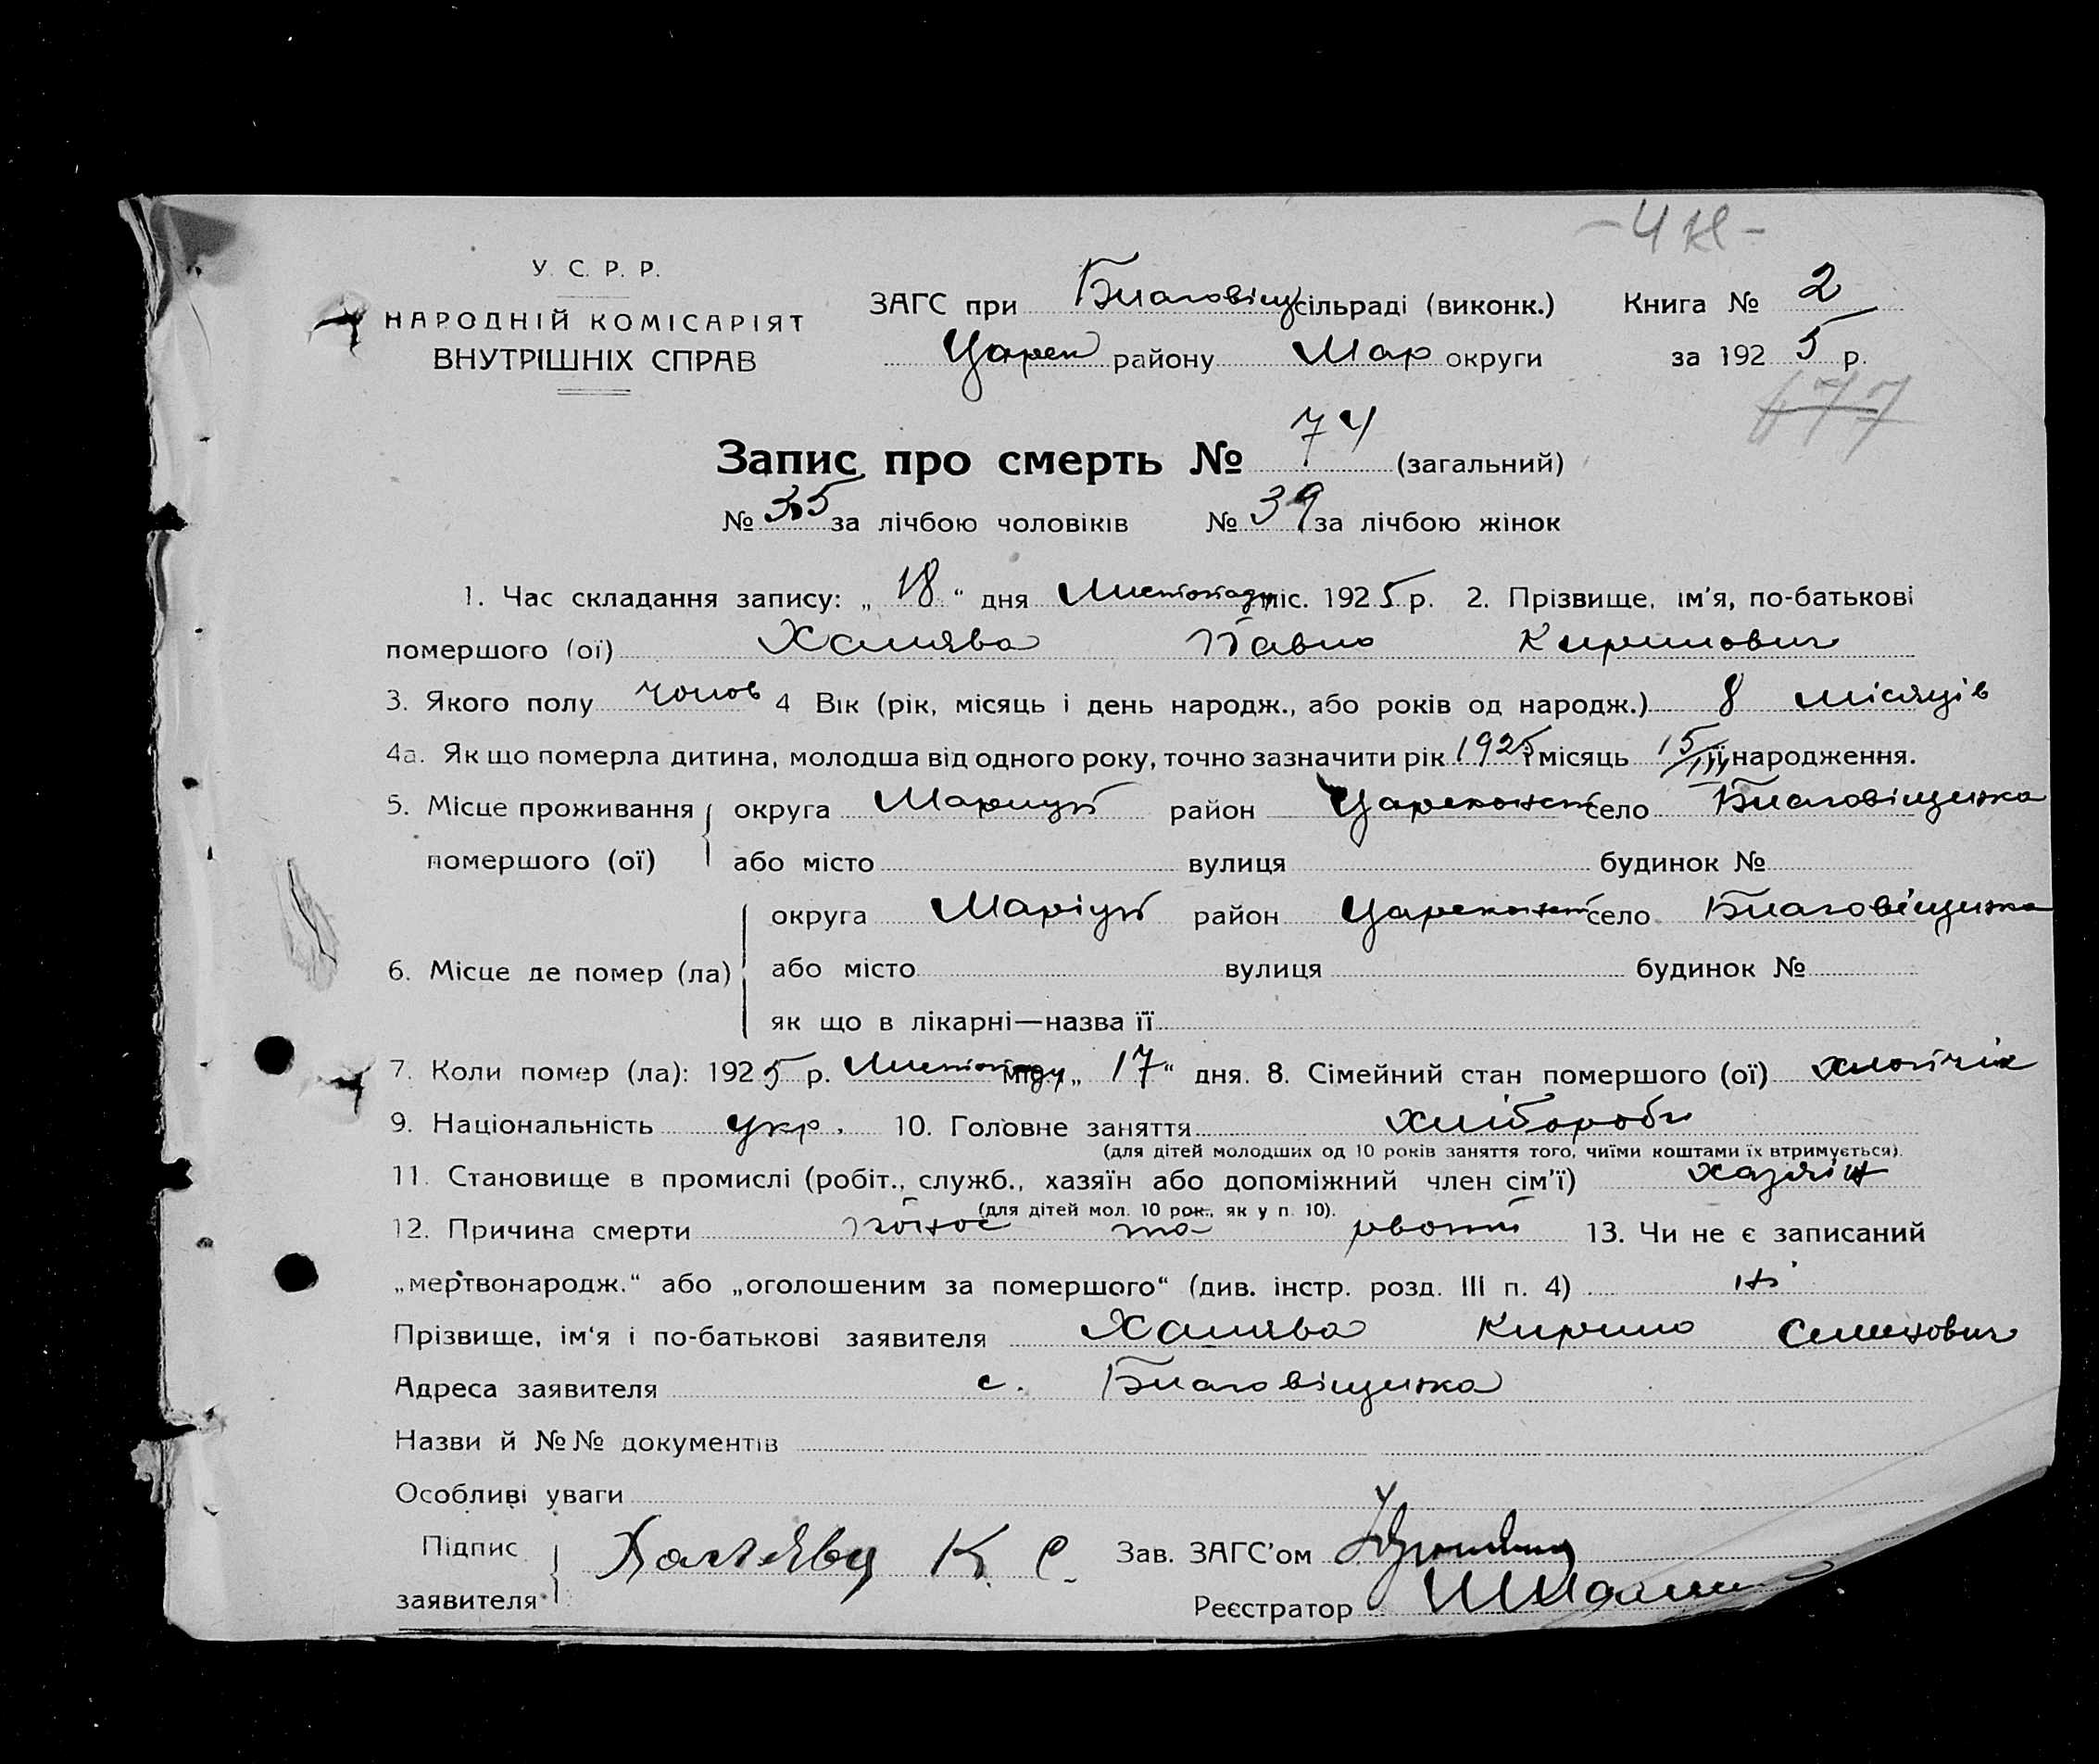 У. С. Р. Р.
НАРОДНІЙ КОМІСАРІЯТ
ВНУТРІШНІХ СПРАВ
ЗАГС при Благовіщ сільраді (виконк.) Книга № 2
Царек району Мар округи за 1925 р.
Запис про смерть № 74 (загальний)
№ 35 за лічбою чоловіків № 39 за лічбою жінок
1. Час складання запису: „18“ дня Листопаду міс. 1925 р. 2. Прізвище, ім'я, по-батькові
помершого (ої) Халява Павло Кирилович
3. Якого полу чолов 4 Вік (рік, місяць і день народж., або років од народж.) 8 місяців
4а. Як що померла дитина, молодша від одного року, точно зазначити рік 1925 і місяць 15/III її народження.
5. Місце проживання округа Маріуп район село Благовіщенка
помершого (ої) або місто вулиця будинок №
округа Маріуп район село Благовіщенка
6. Місце де помер (ла) або місто вулиця будинок №
як що в лікарні—назва її
7. Коли помер (ла): 1925 р. Листопаду міс. „17“ дня. 8. Сімейний стан помершого (ої) хлопчік
9. Національність укр. 10. Головне заняття хлібороб
(для дітей молодших од 10 років заняття того, чиїми коштами їх втримується).
11. Становище в промислі (робіт., служб., хазяїн або допоміжний член сім'ї) хазяін
(для дітей мол. 10 рок., як у п. 10).
12. Причина смерти понос та рвоти 13. Чи не є записаний
„мертвонародж.“ або „оголошеним за помершого“ (див. інстр. розд. III п. 4) ні
Прізвище, ім'я і по-батькові заявителя Халява Кирило Семенович
Адреса заявителя с. Благовіщенка
Назви й №№ документів
Особливі уваги
Підпис Халява К. С. Зав. ЗАГС'ом
заявителя Реєстратор